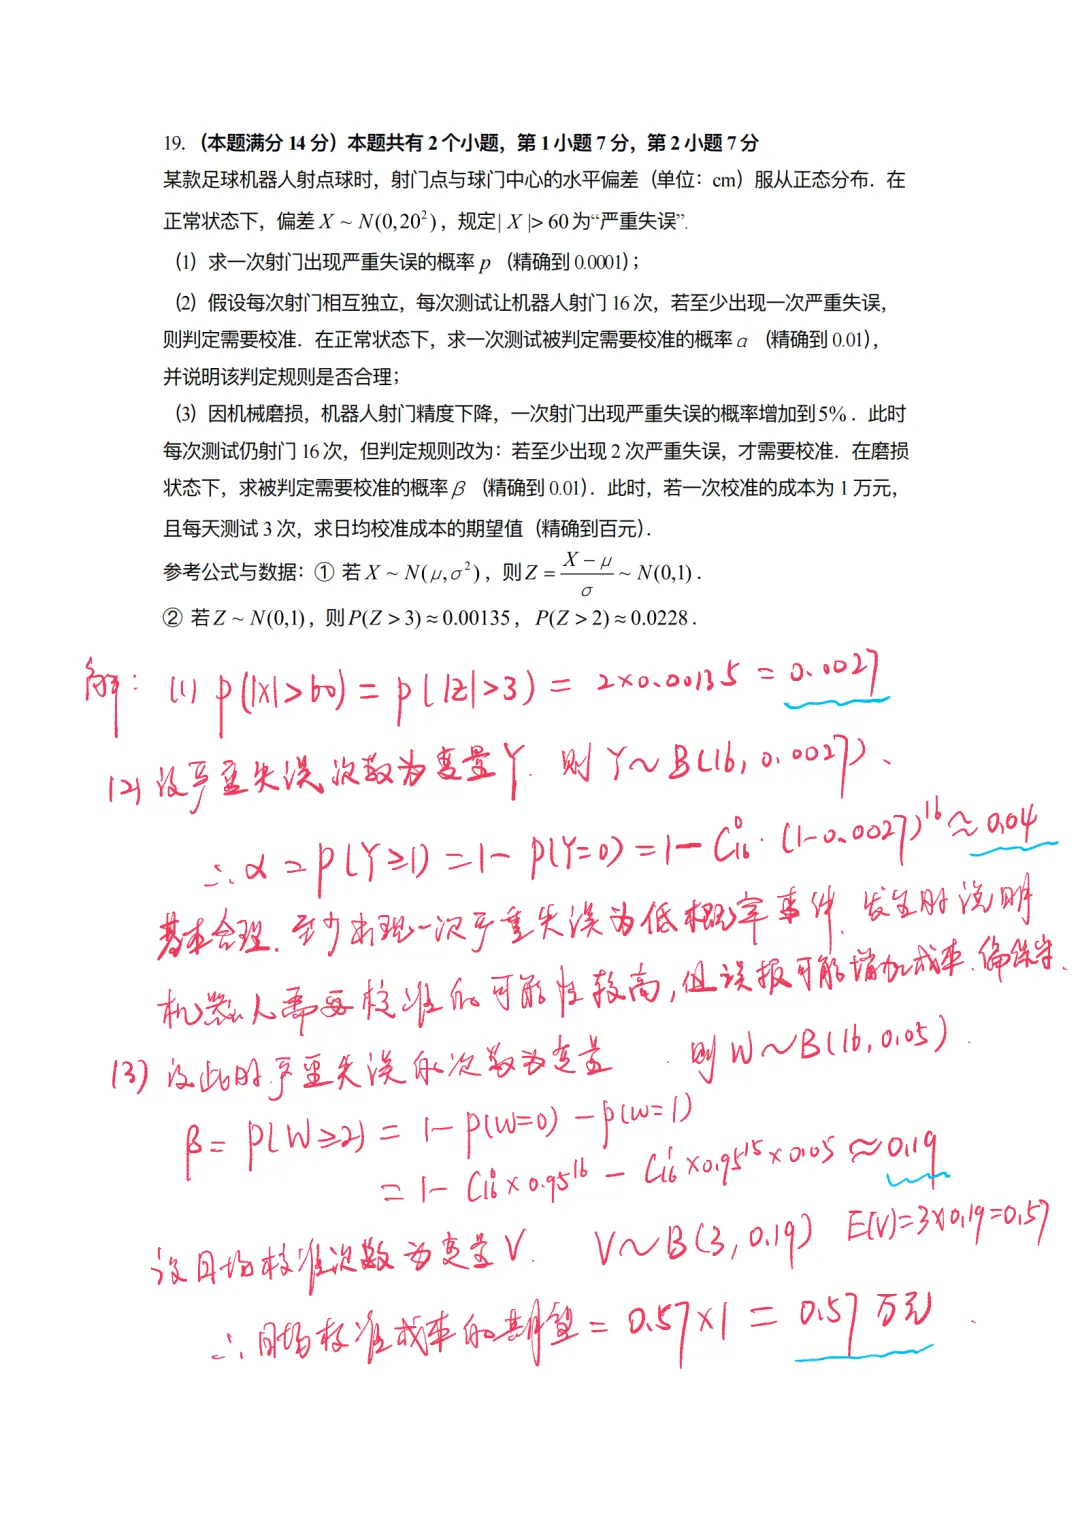 19.（本题满分 14 分）本题共有 2 个小题，第 1 小题 7 分，第 2 小题 7 分
某款足球机器人射点球时，射门点与球门中心的水平偏差（单位：cm）服从正态分布．在
正常状态下，偏差 X ~ N(0,20²)，规定| X |> 60 为“严重失误”.
（1）求一次射门出现严重失误的概率 p （精确到 0.0001)；
（2）假设每次射门相互独立，每次测试让机器人射门 16 次，若至少出现一次严重失误，
则判定需要校准．在正常状态下，求一次测试被判定需要校准的概率 α （精确到 0.01)，
并说明该判定规则是否合理；
（3）因机械磨损，机器人射门精度下降，一次射门出现严重失误的概率增加到5%．此时
每次测试仍射门 16 次，但判定规则改为：若至少出现 2 次严重失误，才需要校准．在磨损
状态下，求被判定需要校准的概率 β （精确到 0.01)．此时，若一次校准的成本为 1 万元，
且每天测试 3 次，求日均校准成本的期望值（精确到百元）．
参考公式与数据：① 若 X ~ N(μ,σ²)，则 Z = (X − μ)/σ ~ N(0,1)．
② 若 Z ~ N(0,1)，则 P(Z > 3) ≈ 0.00135，P(Z > 2) ≈ 0.0228．
解：(1) P(|X|>60) = P(|Z|>3) = 2×0.00135 = 0.0027
(2) 设严重失误次数为变量Y. 则 Y~B(16, 0.0027)、
∴ α = P(Y≥1) = 1− P(Y=0) = 1− C₁₆⁰·(1−0.0027)¹⁶ ≈ 0.04
基本合理. 至少出现一次严重失误为低概率事件, 发生时说明
机器人需要校准的可能性较高, 但误报可能增加成本. 偏保守.
(3) 设此时严重失误的次数为变量 . 则 W~B(16, 0.05) .
β = P(W≥2) = 1− P(W=0) − P(W=1)
= 1− C₁₆⁰×0.95¹⁶ − C₁₆¹×0.95¹⁵×0.05 ≈ 0.19
设日均校准次数为变量V. V~B(3, 0.19) E(V)=3×0.19=0.57
∴ 日均校准成本的期望 = 0.57×1 = 0.57万元 .